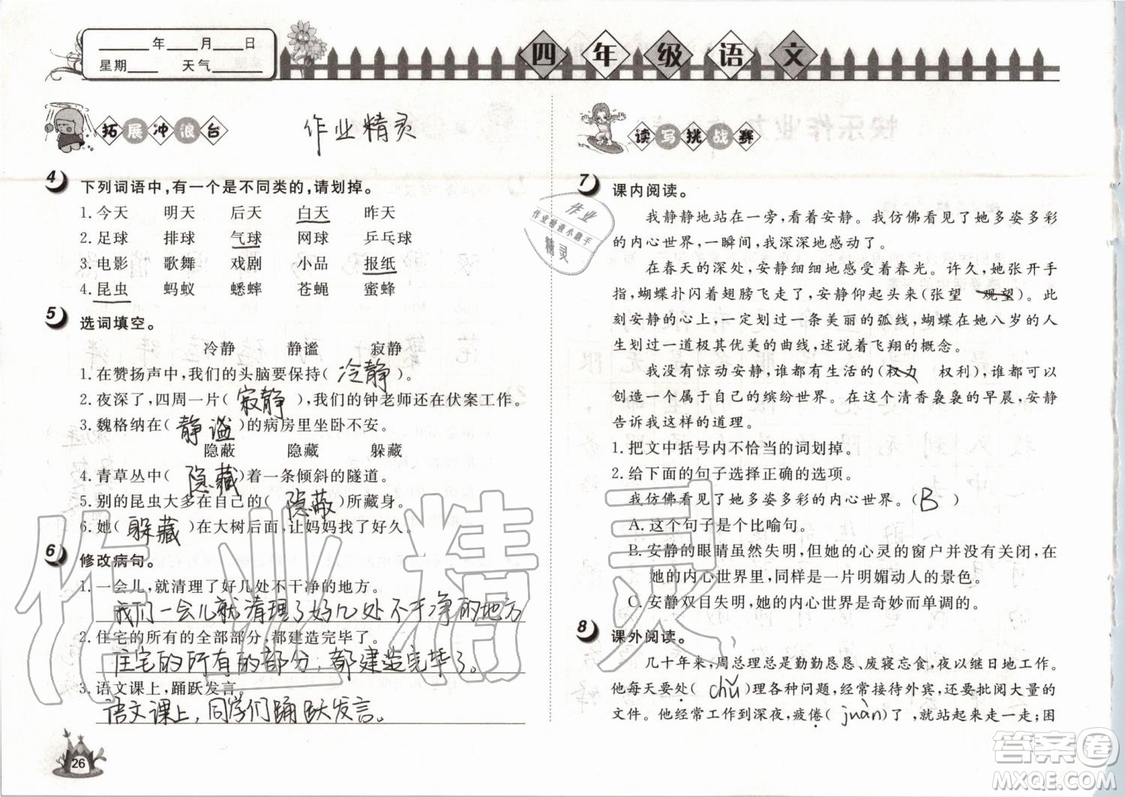 ____年____月____日
星期____ 天气____
四年级语文
拓展冲浪台
作业精灵
4 下列词语中,有一个是不同类的,请划掉。
1.今天 明天 后天 白天 昨天
2.足球 排球 气球 网球 乒乓球
3.电影 歌舞 戏剧 小品 报纸
4.昆虫 蚂蚁 蟋蟀 苍蝇 蜜蜂
5 选词填空。
冷静 静谧 寂静
1.在赞扬声中,我们的头脑要保持(冷静)。
2.夜深了,四周一片(寂静),我们的钟老师还在伏案工作。
3.魏格纳在(静谧)的病房里坐卧不安。
隐蔽 隐藏 躲藏
4.青草丛中(隐藏)着一条倾斜的隧道。
5.别的昆虫大多在自己的(隐蔽)所藏身。
6.她(躲藏)在大树后面,让妈妈找了好久。
6 修改病句。
1.一会儿,就清理了好几处不干净的地方。
我们一会儿就清理了好几处不干净的地方
2.住宅的所有的全部部分,都建造完毕了。
住宅的所有的部分,都建造完毕了。
3.语文课上,踊跃发言。
语文课上,同学们踊跃发言。
26
读写挑战赛
7 课内阅读。
我静静地站在一旁,看着安静。我仿佛看见了她多姿多彩
的内心世界,一瞬间,我深深地感动了。
在春天的深处,安静细细地感受着春光。许久,她张开手
指,蝴蝶扑闪着翅膀飞走了,安静仰起头来(张望 观望)。此
刻安静的心上,一定划过一条美丽的弧线,蝴蝶在她八岁的人
生划过一道极其优美的曲线,述说着飞翔的概念。
我没有惊动安静,谁都有生活的(权力 权利),谁都可以
创造一个属于自己的缤纷世界。在这个清香袅袅的早晨,安静
告诉我这样的道理。
1.把文中括号内不恰当的词划掉。
2.给下面的句子选择正确的选项。
我仿佛看见了她多姿多彩的内心世界。(B)
A.这个句子是个比喻句。
B.安静的眼睛虽然失明,但她的心灵的窗户并没有关闭,在
她的内心世界里,同样是一片明媚动人的景色。
C.安静双目失明,她的内心世界是奇妙而单调的。
8 课外阅读。
几十年来,周总理总是勤勤恳恳、废寝忘食,夜以继日地工作。
他每天要处(chǔ)理各种问题,经常接待外宾,还要批阅大量的
文件。他经常工作到深夜,疲倦(juàn)了,就站起来走一走;困
作业
作业检查小助手
精灵
作业精灵
答案卷
MXQE.COM